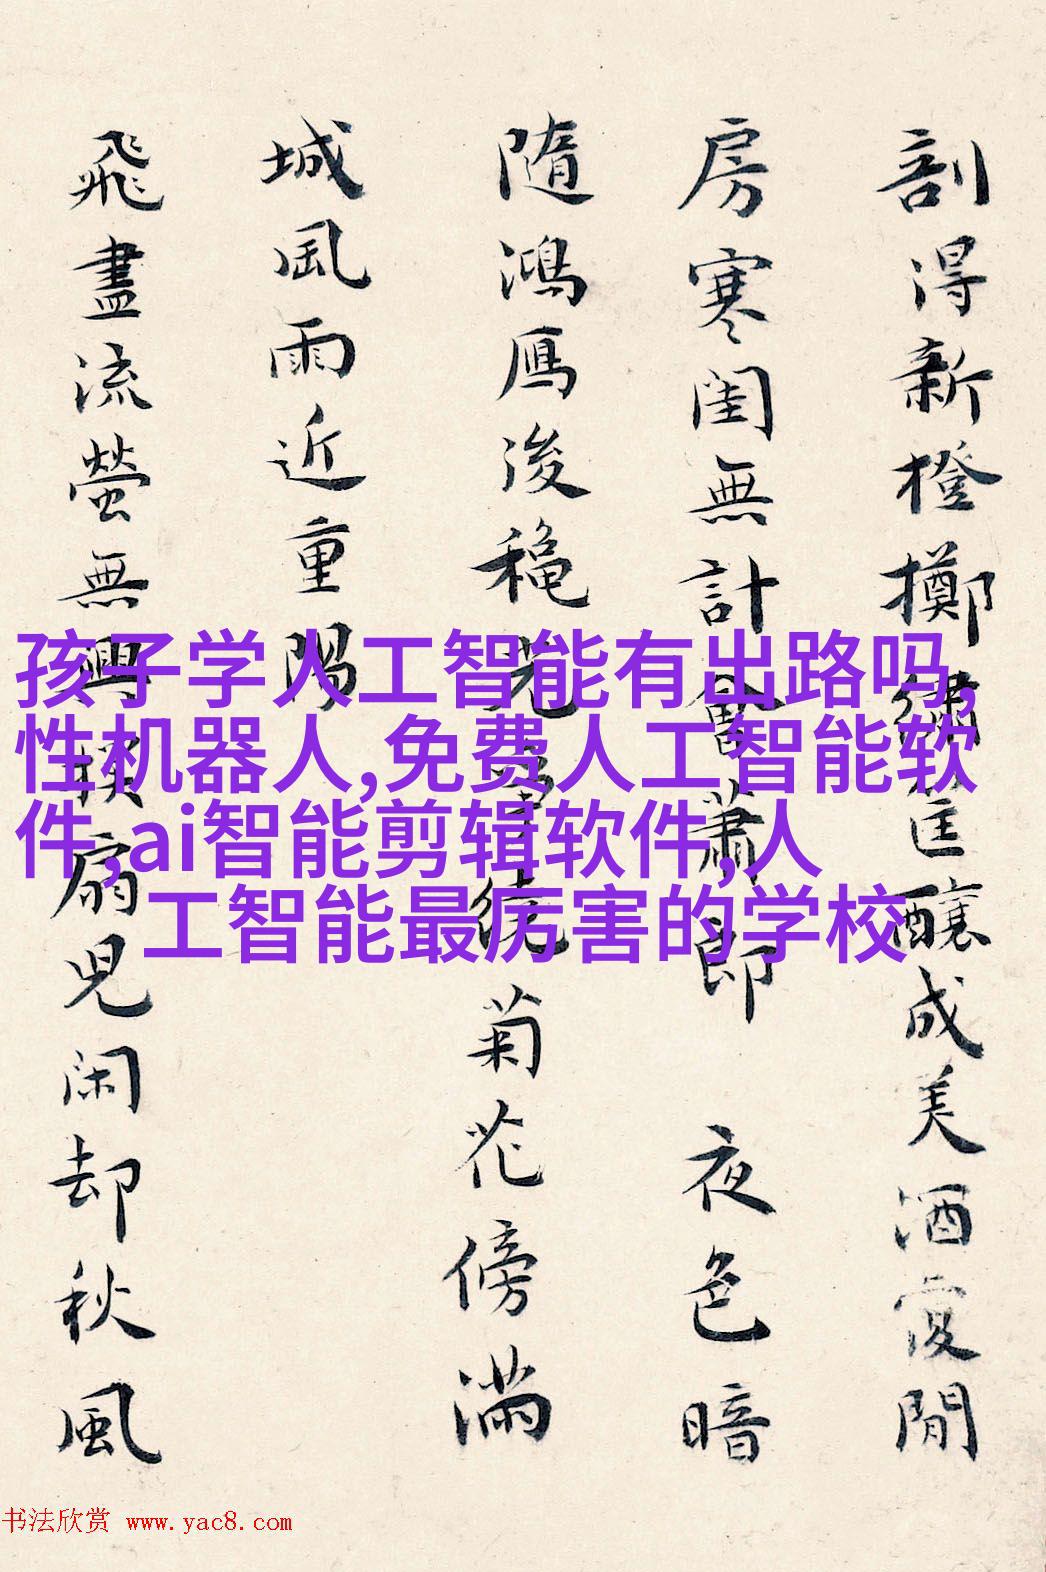 剖得新橙擲繡筐釀成美酒閒
房寒閨無計會蕭郎 夜色暗
隨鴻鴈後穐光繞菊花傍滿
城風雨近重陽
飛盡流螢無興撲扇兒閑却秋風
孩子学人工智能有出路吗,
性机器人,免费人工智能软
件,ai智能剪辑软件,人
工智能最厉害的学校
书法欣赏 www.yac8.com